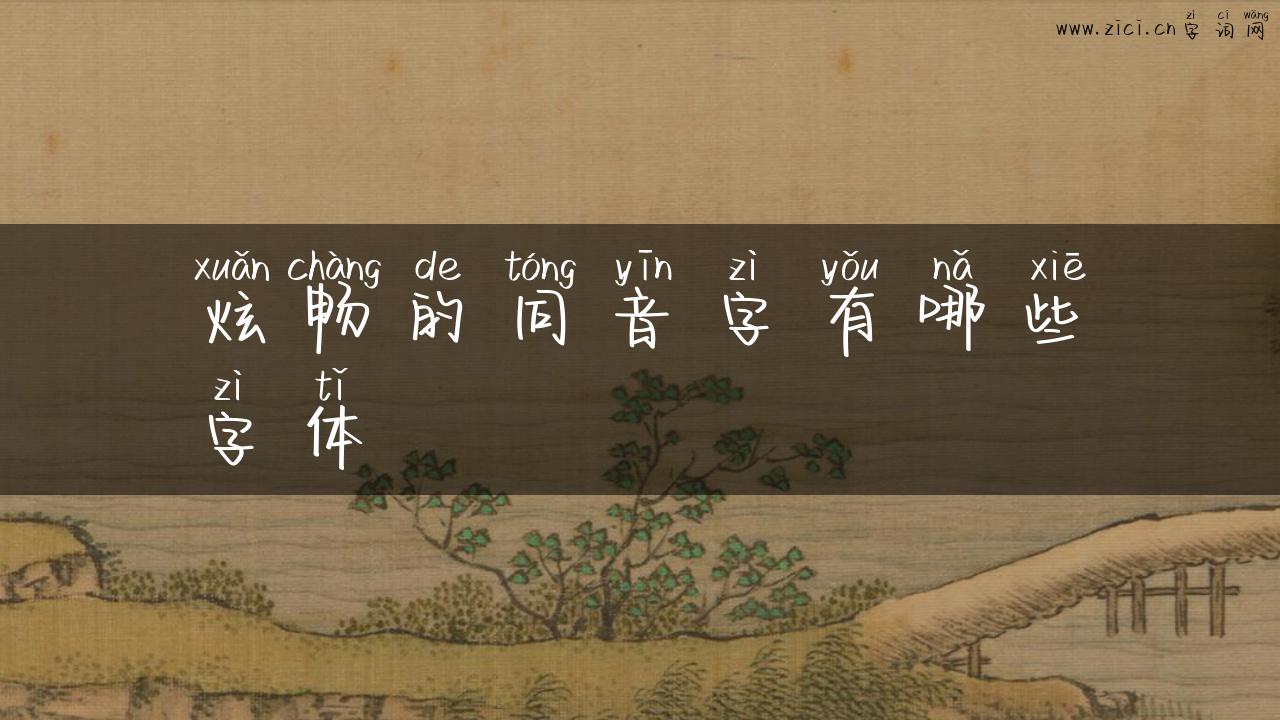 zì cí wǎng
www.zici.cn 字词网
xuǎn chàng de tóng yīn zì yǒu nǎ xiē
炫畅的同音字有哪些
zì tǐ
字体